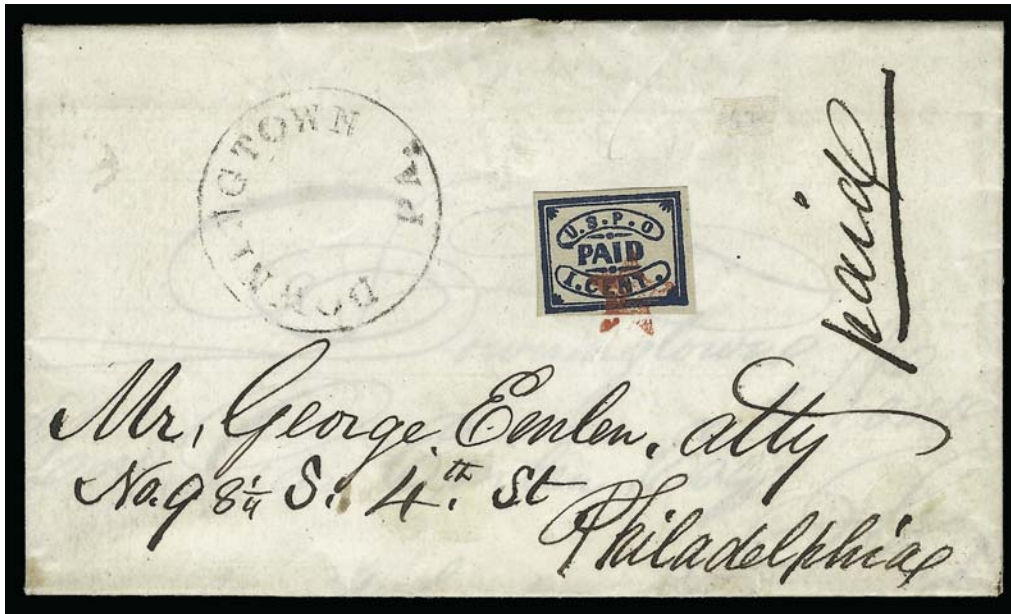 DOWNIGTOWN PA.
U.S.P.O
PAID
1.CENT.
paid
Mr, George Emlen. atty
No. 98¼ S. 4th. St
Philadelphia